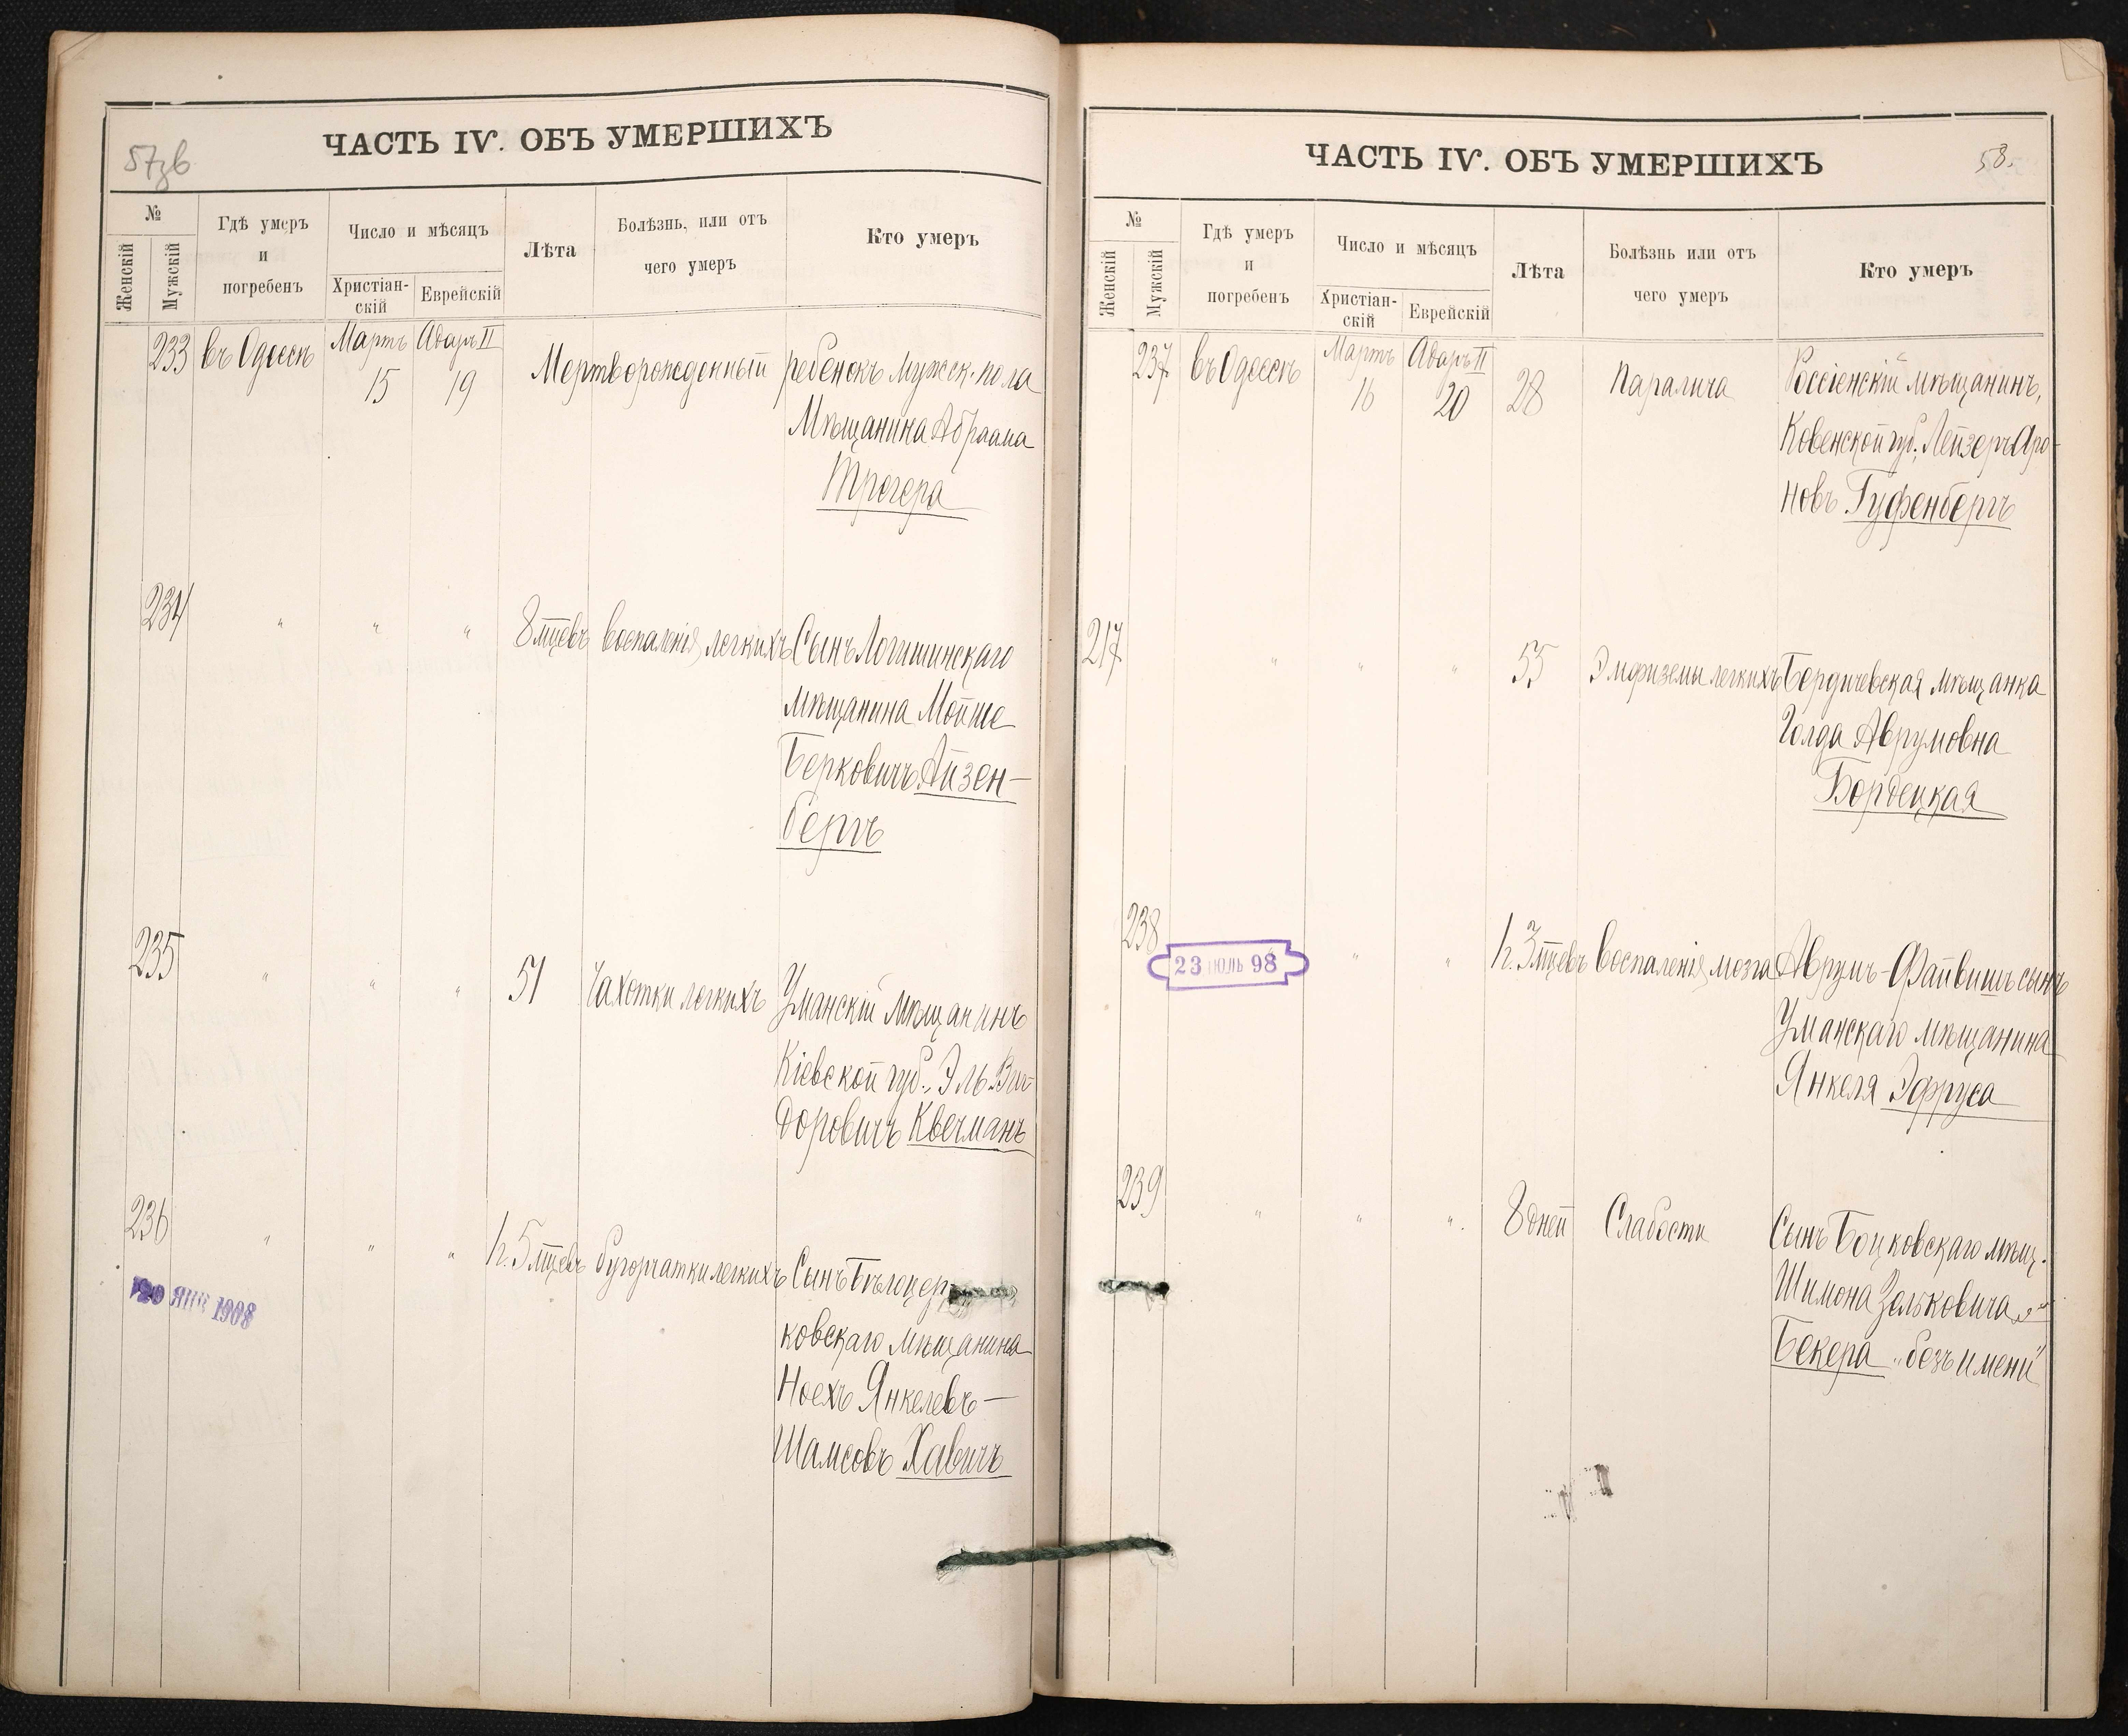 57 зв
ЧАСТЬ IV. ОБЪ УМЕРШИХЪ
№
Женскій
Мужскій
Гдѣ умеръ
и
погребенъ
Число и мѣсяцъ
Христіан-
скій
Еврейскій
Лѣта
Болѣзнь, или отъ
чего умеръ
Кто умеръ
233 въ Одессѣ Мартъ Адаръ II
15 19 Мертворожденный ребенокъ мужск. пола
Мѣщанина Абраама
Трогера
234 " " " 8 мцевъ воспаленія легкихъ Сынъ Логишинскаго
мѣщанина Мойше
Берковичъ Айзен-
бергъ
235 " " " 51 Чахотки легкихъ Уманскій мѣщанинъ
Кіевской губ., Эль Виг-
доровичъ Квечманъ
236 " " " 1 г. 5 мцевъ бугорчатки легкихъ Сынъ Бѣлоцер-
ковскаго мѣщанина
Ноехъ Янкелевъ-
Шамсовъ Хавичъ
20 ЯНВ 1908
58.
ЧАСТЬ IV. ОБЪ УМЕРШИХЪ
№
Женскій
Мужскій
Гдѣ умеръ
и
погребенъ
Число и мѣсяцъ
Христіан-
скій
Еврейскій
Лѣта
Болѣзнь или отъ
чего умеръ
Кто умеръ
237 въ Одессѣ Мартъ Адаръ II
16 20 28 Паралича Россіенскій мѣщанинъ,
Ковенской губ., Лейзеръ Аро-
новъ Гуфенбергъ
217 " " " 55 Эмфиземы легкихъ Бердичевская мѣщанка
Голда Аврумовна
Бордецкая
238 " " 1 г. 3 мцевъ воспаленія мозга Аврумъ-Файвишъ сынъ
Уманскаго мѣщанина
Янкеля Эфруса
23 ІЮЛЬ 98
239 " " " 8 дней Слабости Сынъ Боцковскаго мѣщ.
Шимона Зельковича
Бекера „безъ имени"